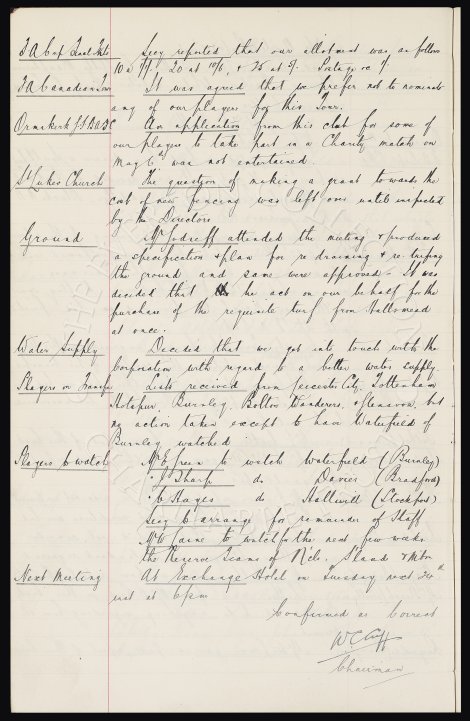 F A Cup Final Tkts Secy reported that our allotment was as follows
10 at 20 at 10/6, & 75 at 5/-. Postage &c
F A Canadian Tour It was agreed that we prefer not to nominate
any of our players for this Tour.
Ormskirk An application from this club for some of
our players to take part in a Charity match on
May 6th was not entertained.
St Lukes Church The question of making a grant towards the
cost of new fencing was left over until inspected
by the Directors
Ground Mr attended the meeting & produced
a specification & plan for re draining & re turfing
the ground and same were approved. It was
decided that he act on our behalf for the
purchase of the requisite turf from
at once.
Water Supply Decided that we get into touch with the
Corporation with regard to a better water supply.
Players on Transfer Lists received from Leicester City, Tottenham
Hotspur, Burnley, Bolton Wanderers, & but
no action taken except to have Waterfield of
Burnley watched
Players to watch Mr E Green to watch Waterfield (Burnley)
" J Sharp do Davies (Bradford)
" C Hayes do Halliwell (Stockport)
Secy to arrange for remainder of Staff
Mr to watch for the next few weeks
the Reserve Teams of
Next Meeting At Exchange Hotel on Tuesday next
inst at 6 pm
Confirmed as Correct
W C Cuff
Chairman